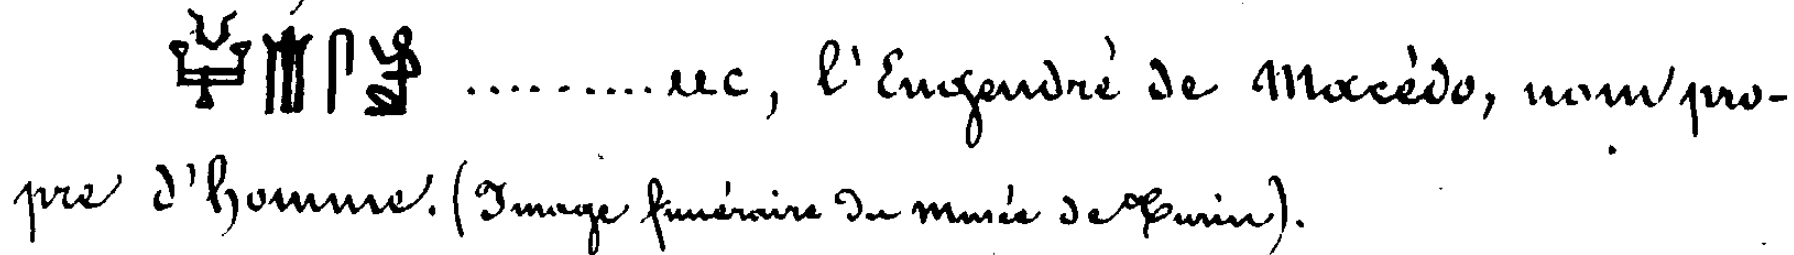 .........., l'Engendré de Macédo, nom pro-
pre d'homme. (Image funéraire du musée de Turin).